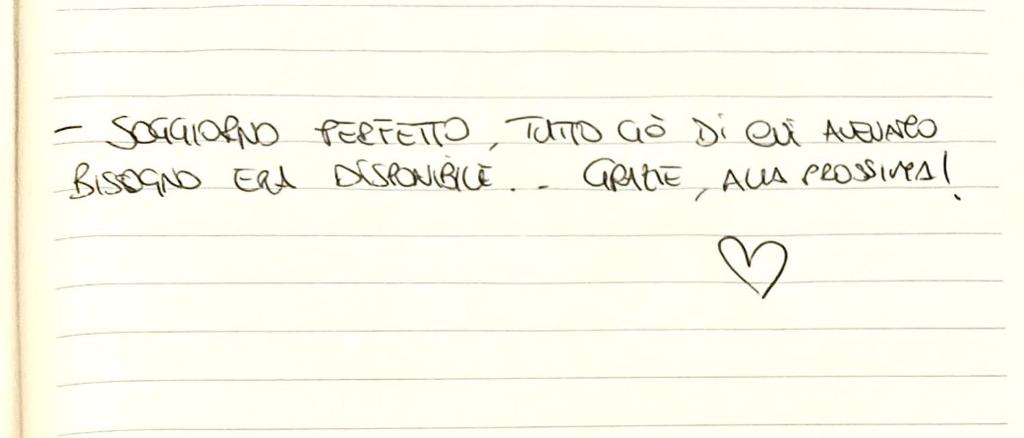 - SOGGIORNO PERFETTO, TUTTO CIÒ DI CUI AVEVAMO
BISOGNO ERA DISPONIBILE.. GRAZIE, ALLA PROSSIMA!